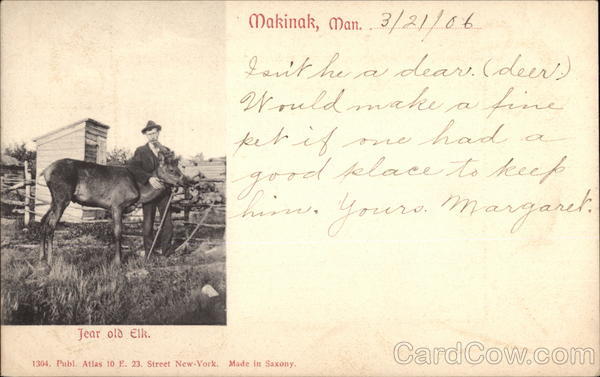 Makinak, Man. 3/21/06
Isn't he a dear. (deer.)
Would make a fine
pet if one had a
good place to keep
him. Yours. Margaret.
Jear old Elk.
1304. Publ. Atlas 10 E. 23. Street New-York. Made in Saxony.
CardCow.com